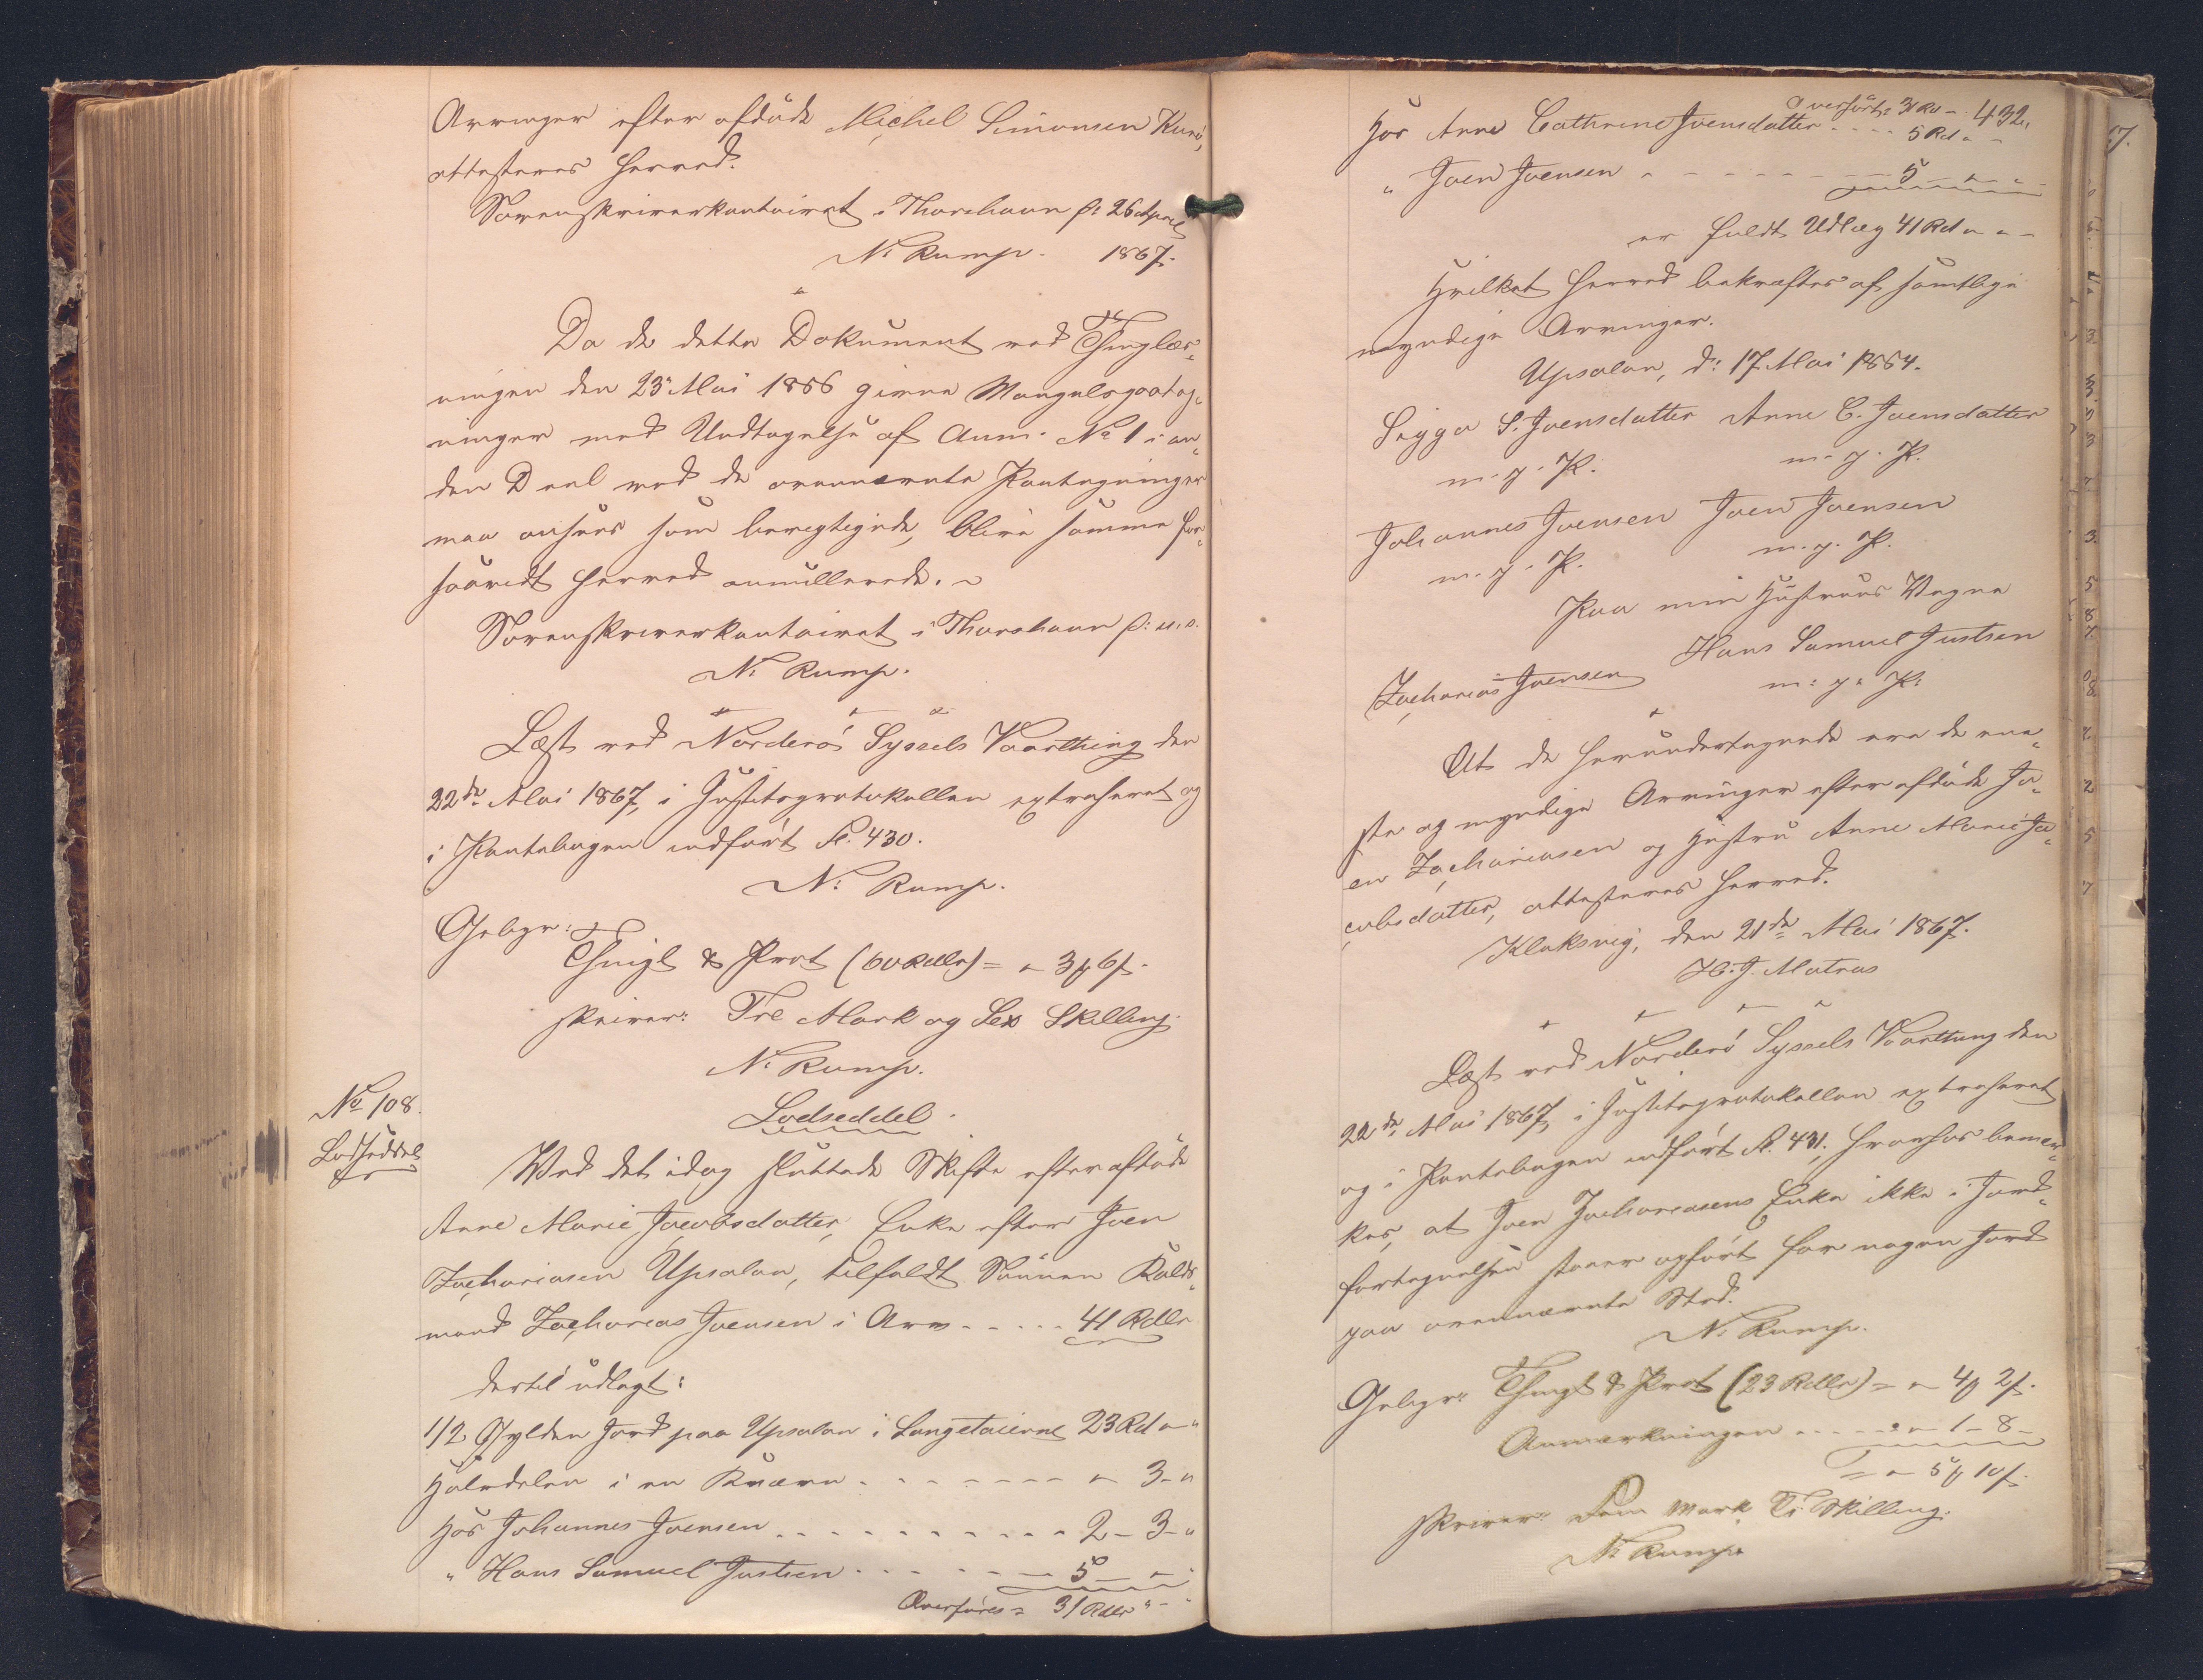 Arvinger efter afdøde Michel Simonsen Kunø,
attesteres herved.
Sorenskriverkontoiret i Thorshavn d: 26 April
N. Rump. 1867.
Da de dette Dokument ved Thinglæs-
ningen den 23 Mai 1856 givne Mangelspaateg-
ninger med Undtagelse af Anm. No 1 i an-
den Deel ved de ovennævnte Paategninger
maa ansees som berigtigede, blive samme for-
saavidt herved annullerede. ~
Sorenskriverkontoiret i Thorshavn d: u.s.
N. Rump.
Læst ved Norderø Syssels Vaarthing den
22de Mai 1867, i Justitsprotokollen extraheret og
i Pantebogen indført Fol. 430.
N. Rump.
Gebyr:
Thingl & Prot (60 Rdlr) = " 3 ₰ 6 ß.
skriver: Tre Mark og Sex Skilling.
N. Rump.
No 108.
Lodseddel
Lodseddel.
Ved det idag sluttede Skifte efter afdøde
Anne Marie Jacobsdatter, Enke efter Joen
Zachariasen Upsalen, tilfaldt Sønnen Kalds-
mand Zacharias Joensen i Arv - - - - - 41 Rdlr
dertil udlagt:
1/2 Gylden Jord paa Upsalen i Langeteierne 23 Rd " - "
Halvdelen i en Kværn - - - - - - - " 3 - "
Hos Johannes Joensen - - - - - - - - - - 2 - 3 - "
" Hans Samuel Justsen - - - - - - - 5 - " - "
Overføres = 31 Rdlr " - "
Overført: 31 Rd - - 432.
Hos Anne Cathrine Joensdatter - - - - 5 Rd " -
" Joen Joensen - - - - - - - - 5 - " - "
er fuldt Udlæg 41 Rd " " -
Hvilket herved bekræftes af samtlige
myndige Arvinger.
Upsalen, d: 17 Mai 1864.
Sigga S. Joensdatter Anne C. Joensdatter
m. f. P. m. f. P.
Johannes Joensen Joen Joensen
m. f. P. m. f. P.
Paa min Hustrues Vegne
Zacharias Joensen Hans Samuel Justsen
m: f: P:
At de herundertegnede ere de ene-
ste og myndige Arvinger efter afdøde Jo-
en Zachariasen og Hustru Anne Marie Ja-
cobsdatter, attesteres herved.
Klaksvig, den 21de Mai 1867.
H. J. Matras
Læst ved Norderø Syssels Vaarthing den
22de Mai 1867, i Justitsprotokollen extraheret
og i Pantebogen indført Fol. 431. hvorhos bemær-
kes, at Joen Zachariasens Enke ikke i Jord-
fortegnelsen staaer opført for nogen Jord
paa ovennævnte Sted.
N. Rump.
Gebyr: Thingl & Prot (23 Rdlr) = " 4 ₰ 2 ß.
Anmærkningen - - - - - " 1 - 8 -
= " 5 ₰ 10 ß.
skriver: Fem Mark Ti Skilling.
N. Rump.